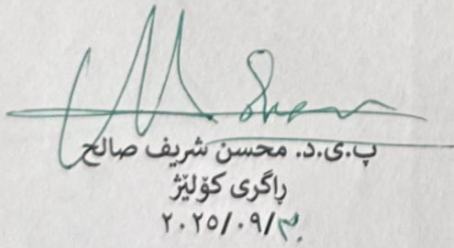 Mohsn
پ.ی.د. محسن شریف صالح
ڕاگری کۆلێژ
٢٠٢٥/٠٩/٣٠